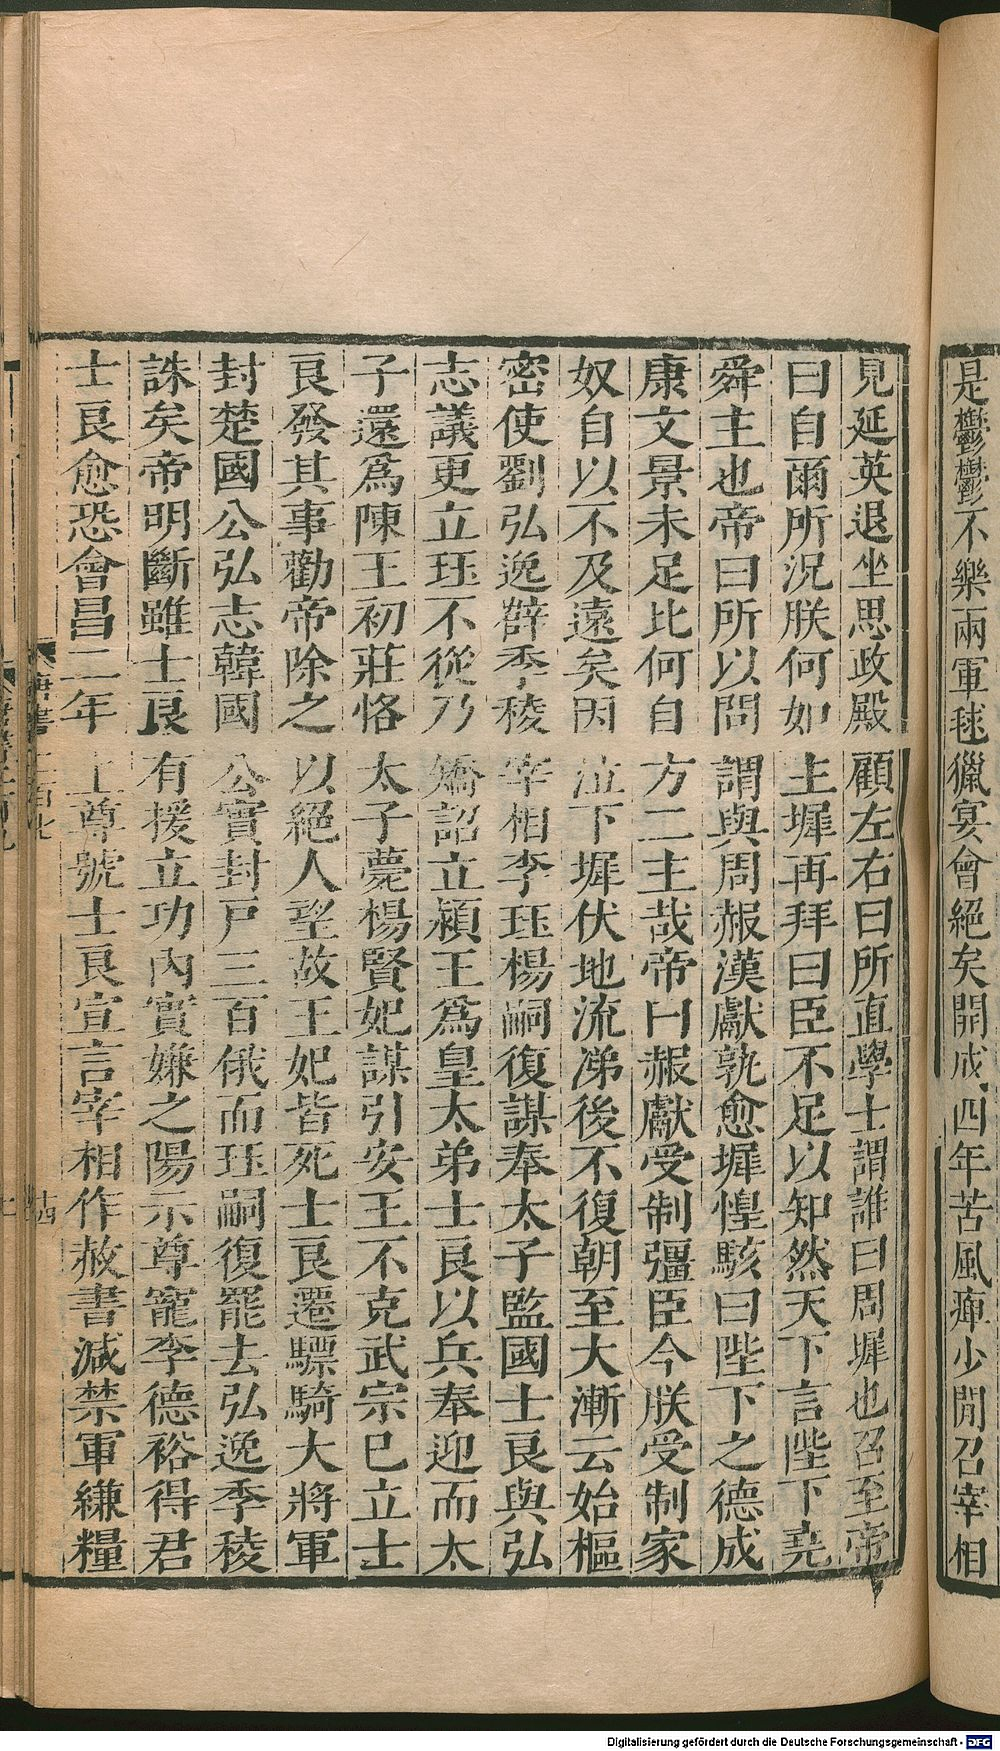 是鬱鬱不樂兩軍毬獵宴會絕矣開成四年苦風痺少閒召宰相
見延英退坐思政殿顧左右曰所直學士謂誰曰周墀也召至帝
曰自爾所況朕何如主墀再拜曰臣不足以知然天下言陛下堯
舜主也帝曰所以問謂與周赧漢獻孰愈墀惶駭曰陛下之德成
康文景未足比何自方二主哉帝曰赧獻受制彊臣今朕受制家
奴自以不及遠矣因泣下墀伏地流涕後不復朝至大漸云始樞
密使劉弘逸薛季稜宰相李珏楊嗣復謀奉太子監國士良與弘
志議更立珏不從乃矯詔立潁王為皇太弟士良以兵奉迎而太
子還為陳王初莊恪太子薨楊賢妃謀引安王不克武宗已立士
良發其事勸帝除之以絕人望故王妃皆死士良遷驃騎大將軍
封楚國公弘志韓國公實封戶三百俄而珏嗣復罷去弘逸季稜
誅矣帝明斷雖士良有援立功內實嫌之陽示尊寵李德裕得君
士良愈恐會昌二年上尊號士良宣言宰相作赦書減禁軍縑糧
十四
Digitalisierung gefördert durch die Deutsche Forschungsgemeinschaft - DFG